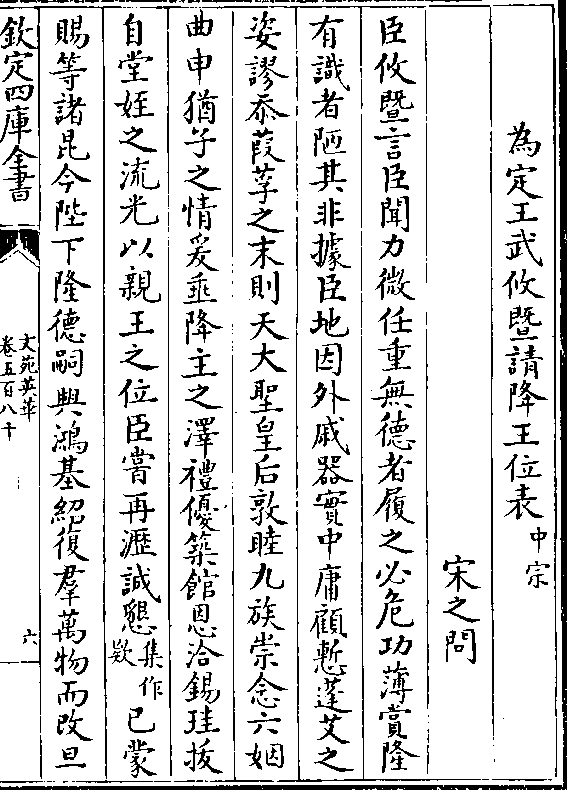 為定王武攸暨請降王位表中宗
宋之問
臣攸暨言臣聞力微任重無德者履之必危功薄賞隆
有識者陋其非據臣地因外戚器實中庸顧慙蓬艾之
姿謬忝葭莩之末則天大聖皇后敦睦九族崇念六姻
曲申猶子之情爰垂降主之澤禮優築館恩洽錫珪拔
自堂姪之流光以親王之位臣嘗再瀝誠懇集作款已蒙
賜等諸昆今陛下隆德嗣興鴻基紹復羣萬物而改旦
欽定四庫全書
文苑英華
卷五百八十
六